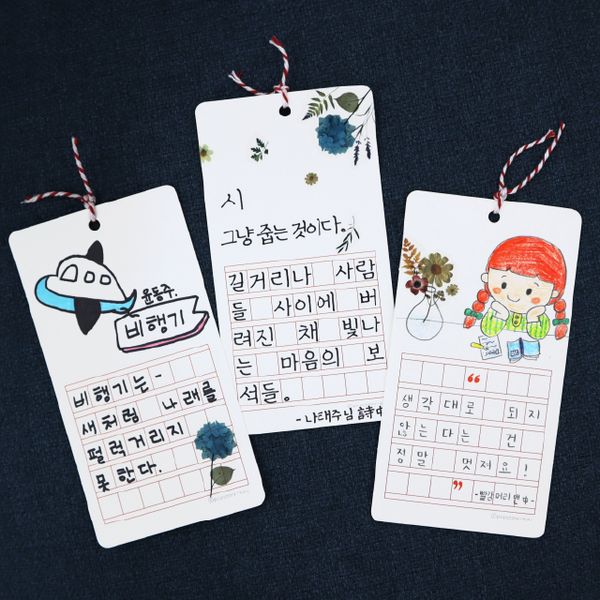 윤동주.
비행기
비행기는-
새처럼 나래를
펄럭거리지
못한다.
시
그냥 줍는 것이다.
길거리나 사람
들 사이에 버
려진 채 빛나
는 마음의 보
석들。
- 나태주님 詩中
❝
생각대로 되지
않는다는 건
정말 멋져요!
❞
-빨간머리 앤 中-